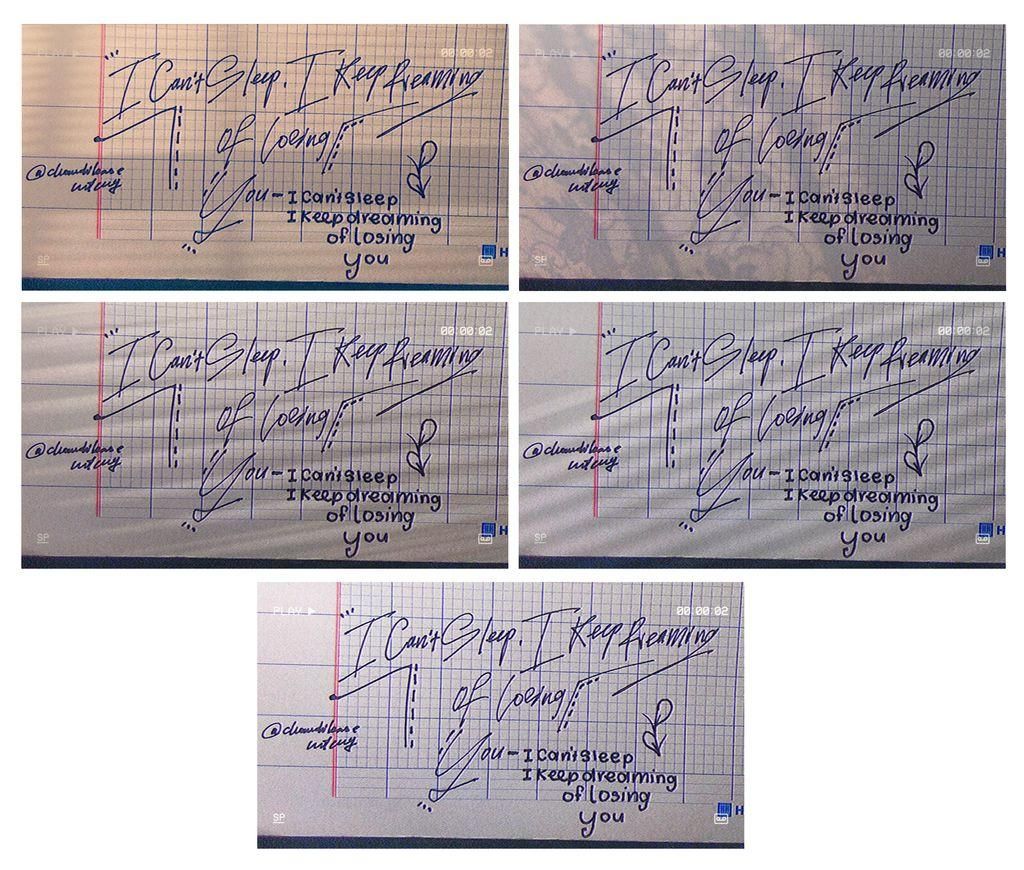 PLAY 00:00:02
"I Can't Sleep. I Keep dreaming
of losing
You - I can't sleep
I keep dreaming
of losing
you
SP
H
PLAY 00:00:02
"I Can't Sleep. I Keep dreaming
of losing
You - I can't sleep
I keep dreaming
of losing
you
SP
H
PLAY 00:00:02
"I Can't Sleep. I Keep dreaming
of losing
You - I can't sleep
I keep dreaming
of losing
you
SP
H
PLAY 00:00:02
"I Can't Sleep. I Keep dreaming
of losing
You - I can't sleep
I keep dreaming
of losing
you
SP
H
PLAY 00:00:02
"I Can't Sleep. I Keep dreaming
of losing
You - I can't sleep
I keep dreaming
of losing
you
SP
H